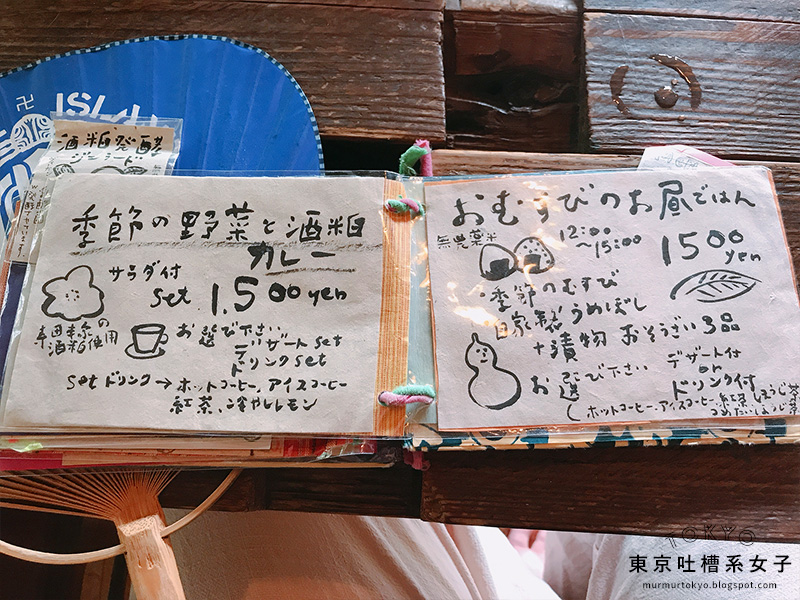 酒粕発酵
ジェラート
季節の野菜と酒粕
カレー
サラダ付
set 1,500yen
の
酒粕使用
お選び下さい
デザートset
ドリンクset
setドリンク→ホットコーヒー、アイスコーヒー
紅茶、冷やしレモン
おむすびのお昼ごはん
無農薬米
12:00
~15:00
1500
yen
・季節のむすび
自家製うめぼし
+漬物 おそうざい3品
お選び下さい
デザート付
or
ドリンク付
ホットコーヒー、アイスコーヒー、紅茶、ほうじ茶
つめたいほうじ茶
TOKYO
東京吐槽系女子
murmurtokyo.blogspot.com